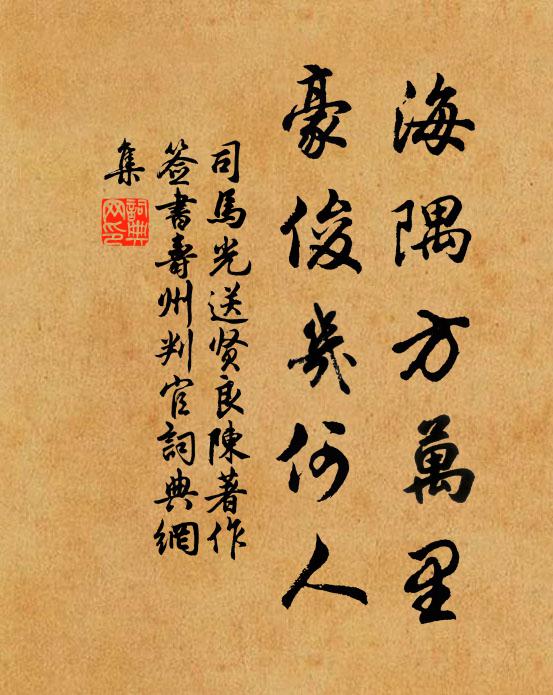 海隅方萬里
豪俊幾何人
司馬光送贤良陳著作
签書壽州判官詞典網
集
詞典网印